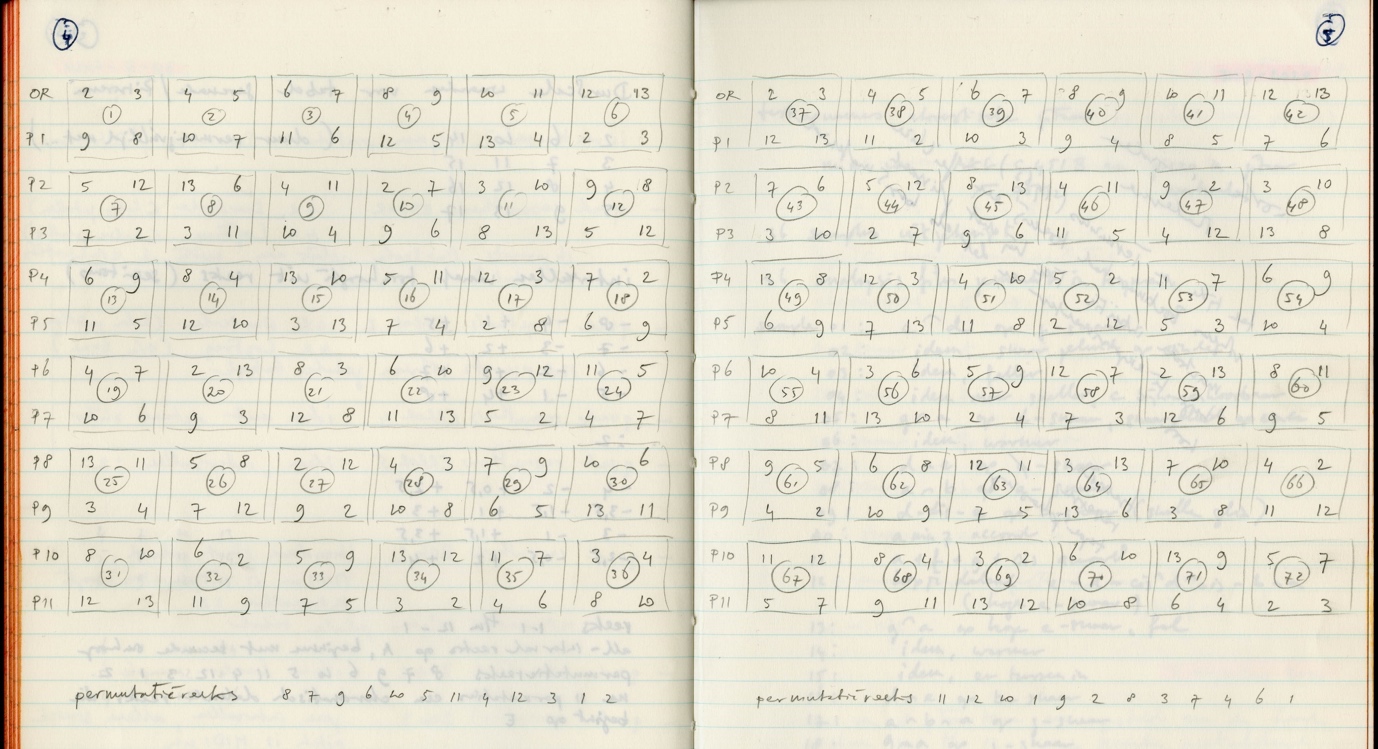 I 4
OR 2 3 4 5 6 7 8 9 10 11 12 13
1 2 3 4 5 6
P1 9 8 10 7 11 6 12 5 13 4 2 3
P2 5 12 13 6 4 11 2 7 3 10 9 8
7 8 9 10 11 12
P3 7 2 3 11 10 4 9 6 8 13 5 12
P4 6 9 8 4 13 10 5 11 12 3 7 2
13 14 15 16 17 18
P5 11 5 12 10 3 13 7 4 2 8 6 9
P6 4 7 2 13 8 3 6 10 9 12 11 5
19 20 21 22 23 24
P7 10 6 9 3 12 8 11 13 5 2 4 7
P8 13 11 5 8 2 12 4 3 7 9 10 6
25 26 27 28 29 30
P9 3 4 7 12 9 2 10 8 6 5 13 11
P10 8 10 6 2 5 9 13 12 11 7 3 4
31 32 33 34 35 36
P11 12 13 11 9 7 5 3 2 4 6 8 10
permutatiereeks 8 7 9 6 10 5 11 4 12 3 1 2
I 5
OR 2 3 4 5 6 7 8 9 10 11 12 13
37 38 39 40 41 42
P1 12 13 11 2 10 3 9 4 8 5 7 6
P2 7 6 5 12 8 13 4 11 9 2 3 10
43 44 45 46 47 48
P3 3 10 2 7 9 6 11 5 4 12 13 8
P4 13 8 12 3 4 10 5 2 11 7 6 9
49 50 51 52 53 54
P5 6 9 7 13 11 8 2 12 5 3 10 4
P6 10 4 3 6 5 9 12 7 2 13 8 11
55 56 57 58 59 60
P7 8 11 13 10 2 4 7 3 12 6 9 5
P8 9 5 6 8 12 11 3 13 7 10 4 2
61 62 63 64 65 66
P9 4 2 10 9 7 5 13 6 3 8 11 12
P10 11 12 8 4 3 2 6 10 13 9 5 7
67 68 69 70 71 72
P11 5 7 9 11 13 12 10 8 6 4 2 3
permutatiereeks 11 12 10 1 9 2 8 3 7 4 6 1